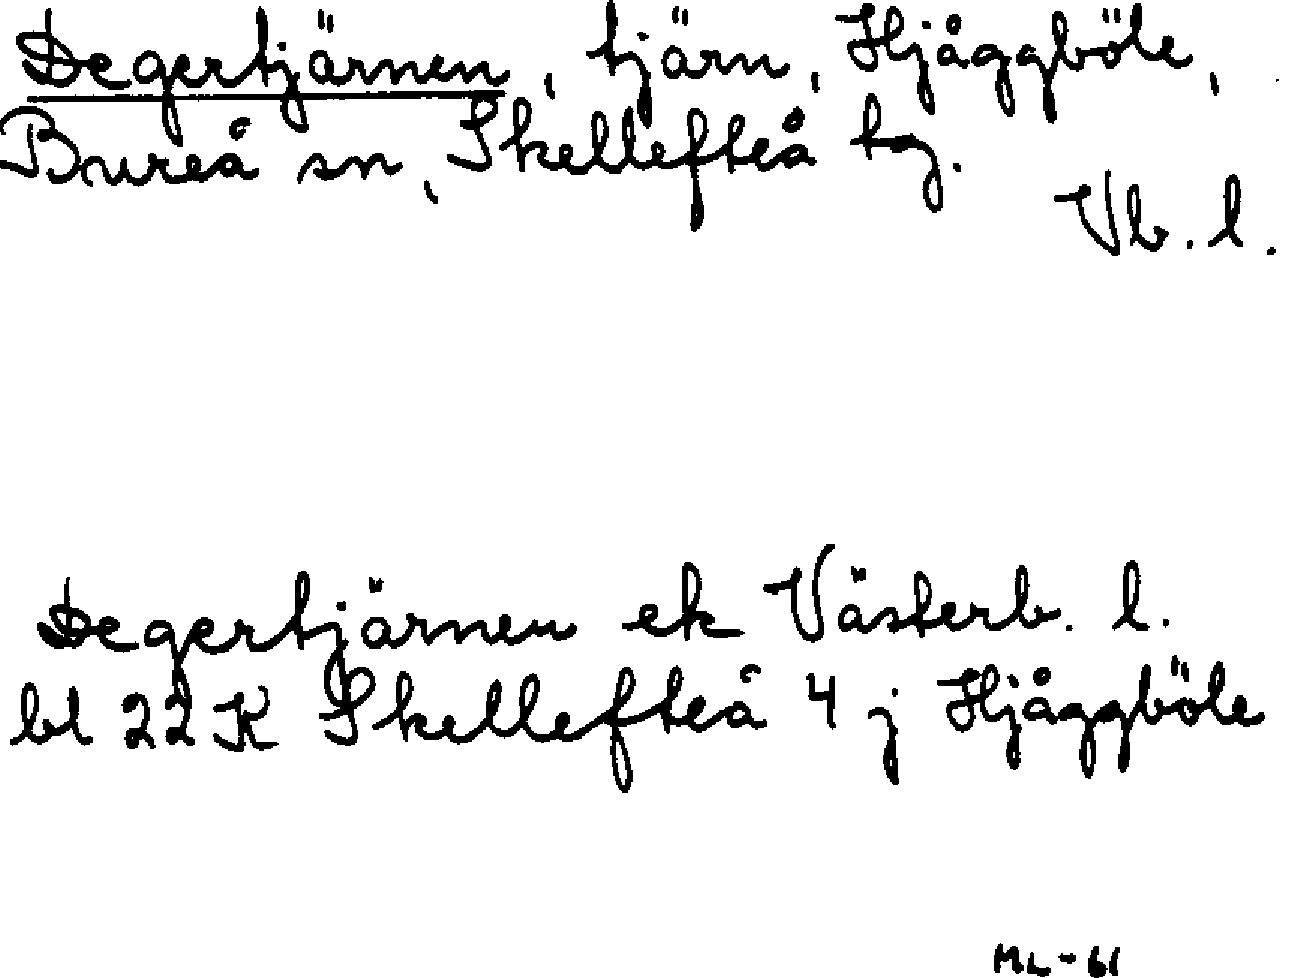 Degertjärnen, tjärn, Hjåggböle,
Bureå sn, Skellefteå tg.
Vb. l.
Degertjärnen ek Västerb. l.
bl 22K Skellefteå 4 j Hjåggböle
ML-61